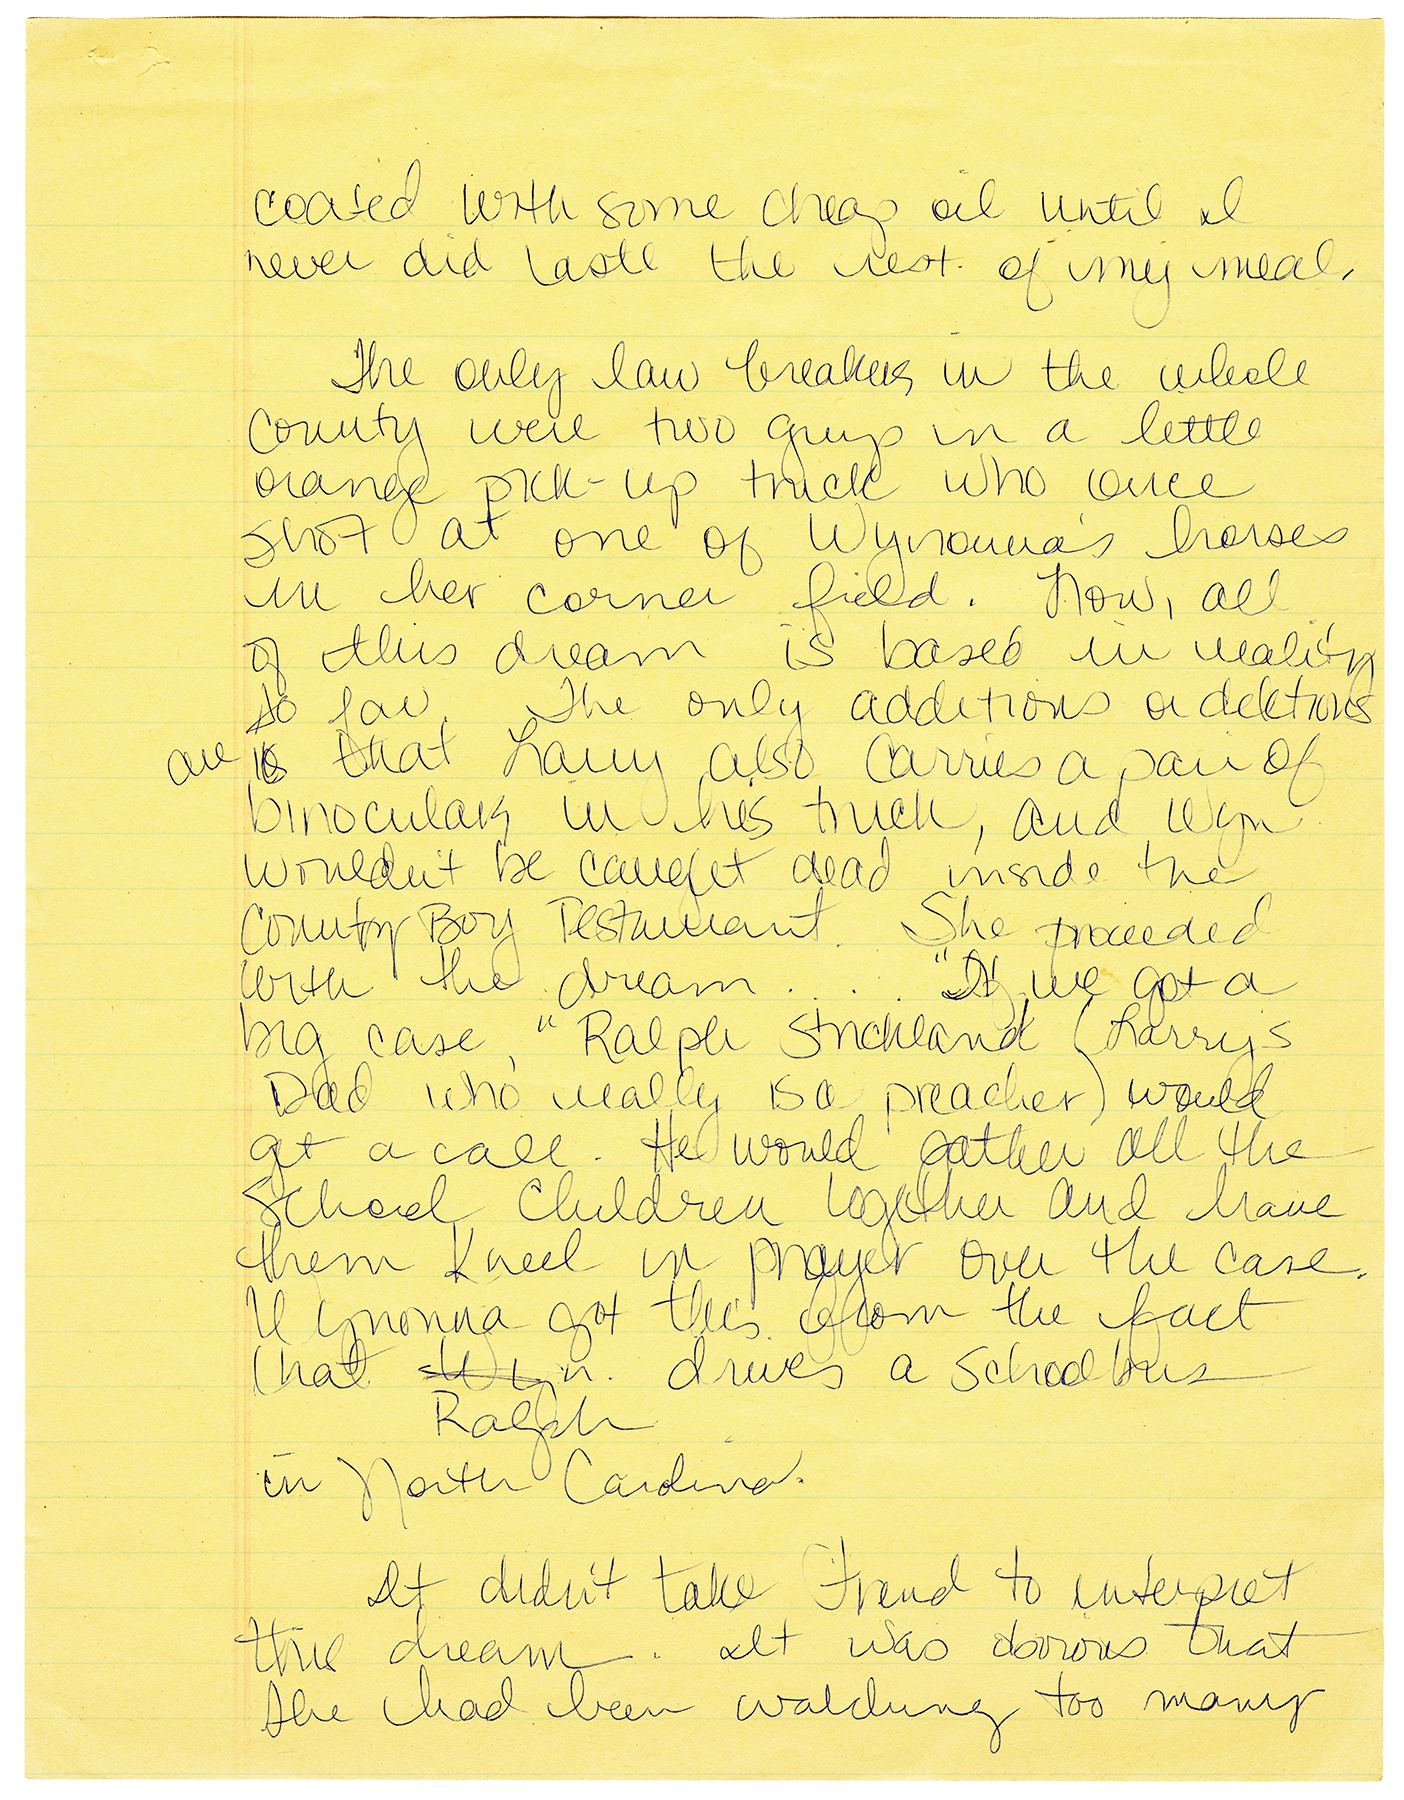 coated with some cheap oil until I
never did taste the rest of my meal.
The only law breakers in the whole
county were two guys in a little
orange pick-up truck who once
shot at one of Wynonna's horses
in her corner field. Now, all
of this dream is based in reality
so far. The only additions or deletions
are is that Larry also carries a pair of
binoculars in his truck, and Wyn
wouldn't be caught dead inside the
County Boy Testaurant. She proceeded
with the dream .... "If we got a
big case," Ralph Strickland (Larry's
Dad who really is a preacher) would
get a call. He would gather all the
school children together and have
them kneel in prayer over the case.
Wynonna got this from the fact
that Wyn. drives a schoolbus
Ralph
in North Carolina.
It didn't take Freud to interpret
this dream. It was obvious that
she had been watching too many